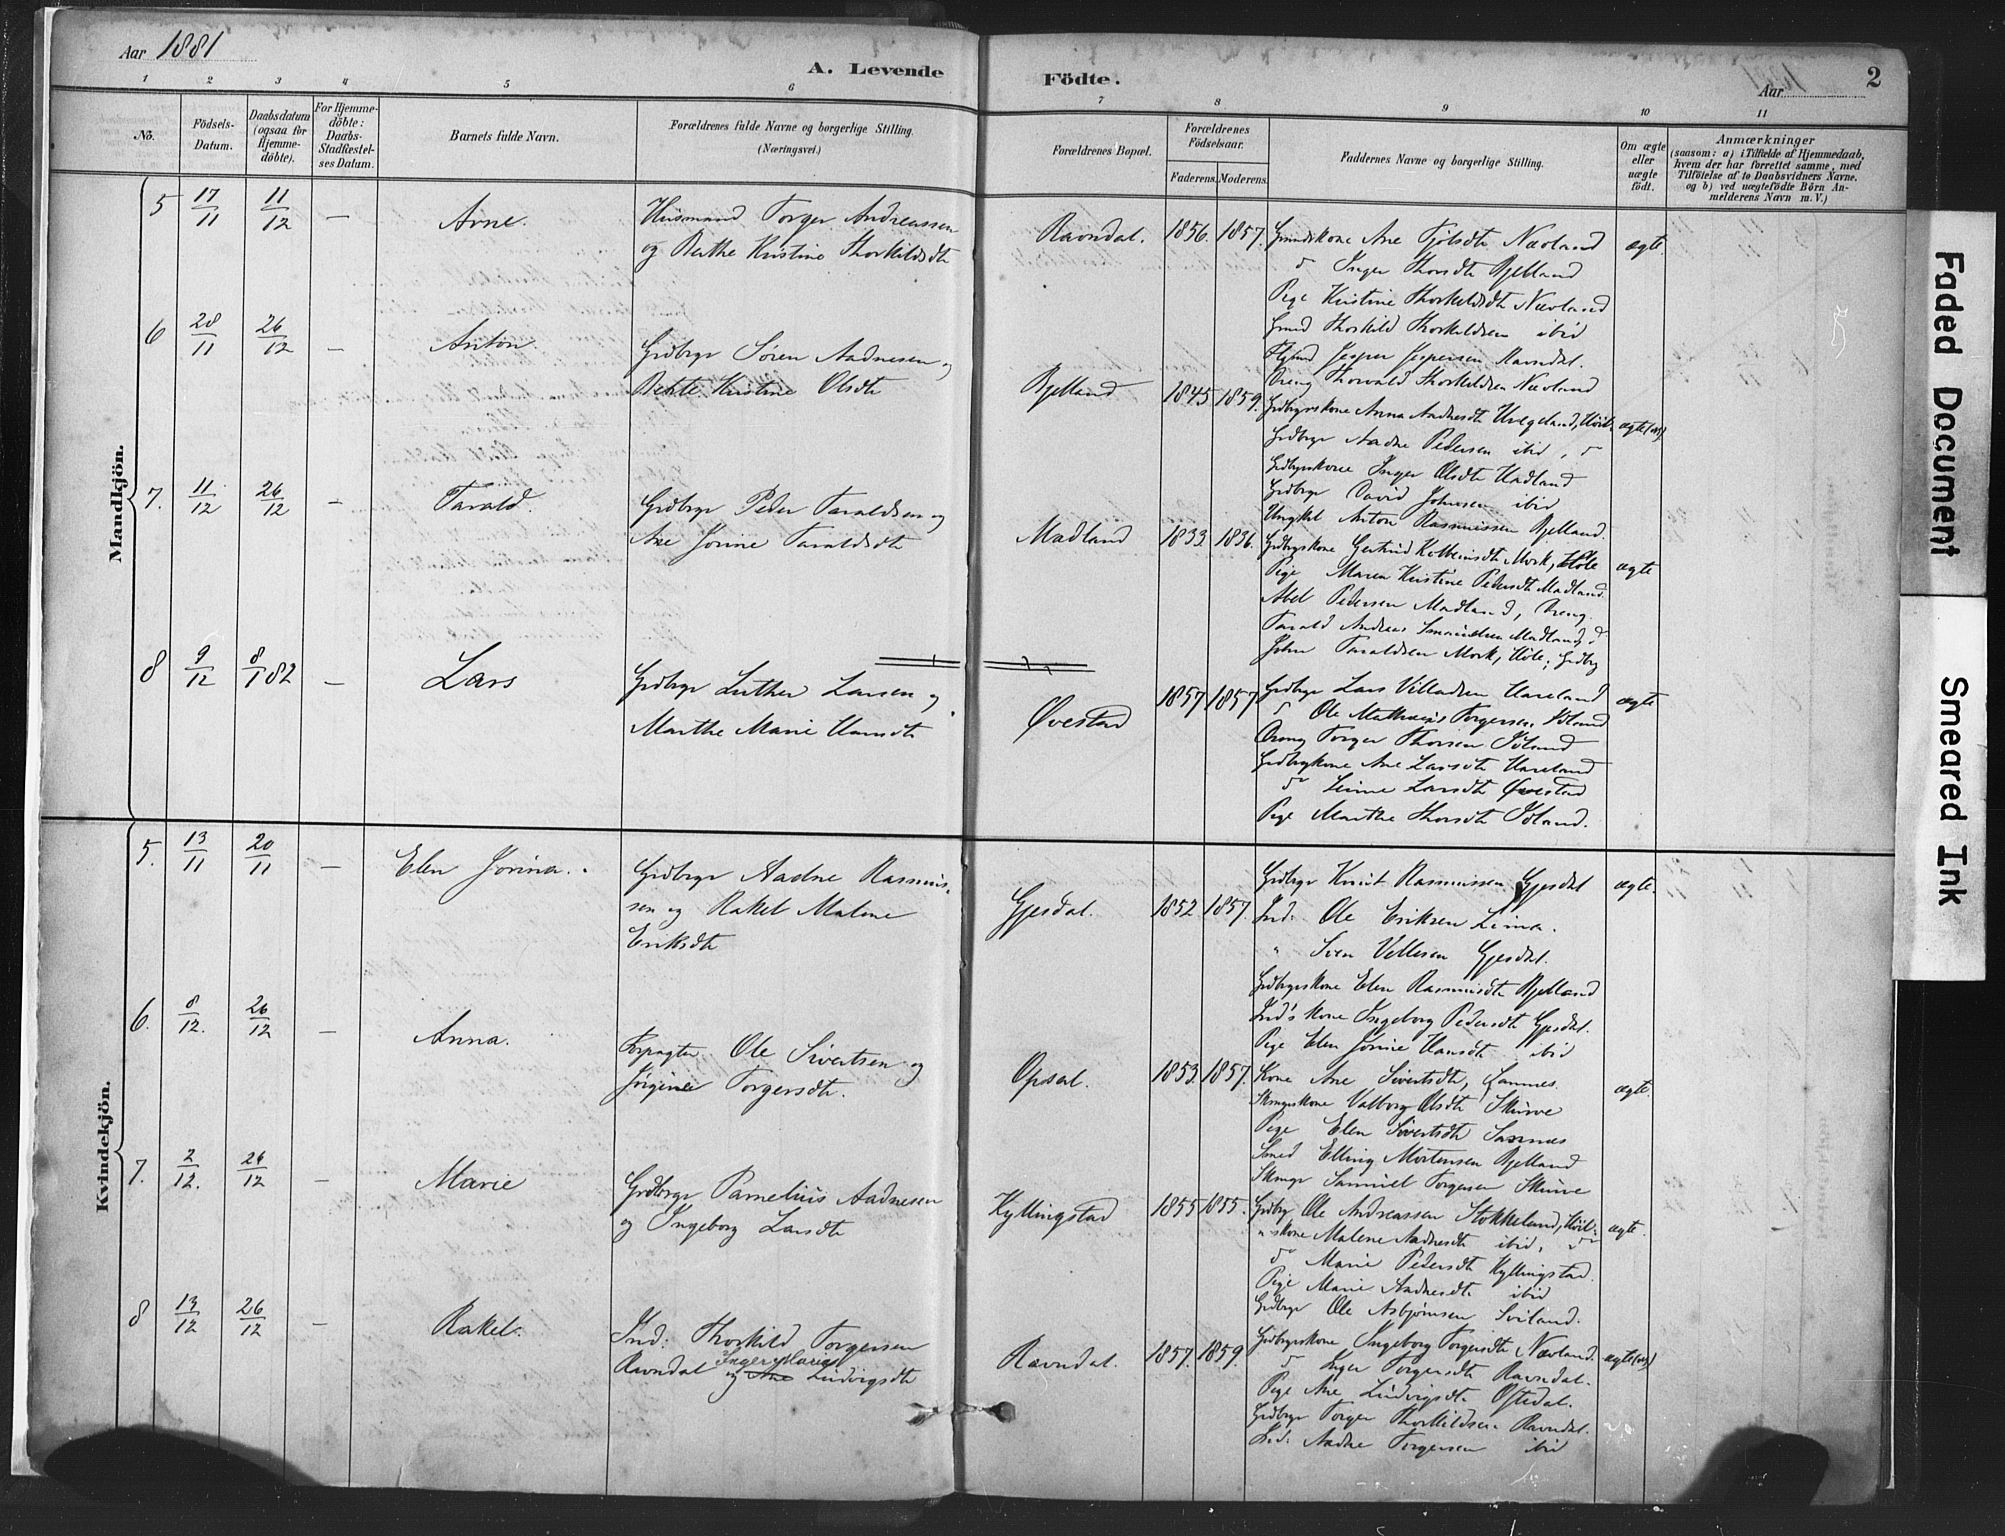 Aar 1881
A. Levende Födte.
Aar
2
1 2 3 4 5 6 7 8 9 10 11
No.
Födsels-Datum.
Daabsdatum (ogsaa for Hjemmedöbte).
For Hjemmedöbte: Daabs-Stadfestelses Datum.
Barnets fulde Navn.
Forældrenes fulde Navne og borgerlige Stilling.
(Næringsvei.)
Forældrenes Bopæl.
Forældrenes Födselsaar.
Faderens. Moderens.
Faddernes Navne og borgerlige Stilling.
Om ægte eller uægte födt.
Anmærkninger
(saasom: a) i Tilfælde af Hjemmedaab,
hvem der har forrettet samme, med
Tilföielse af to Daabsvidners Navne.
og b) ved uægtefödte Börn An-
melderens Navn m. V.)
Mandkjön.
5 17/11 11/12 — Arne. Husmand Torger Andreassen
og Berthe Kristine Thorkildsdtr
Ravndal. 1856. 1857. ægte.
Ane Tjølsdtr Nævland
Inger Thorsdtr Bjelland
Pige Kristine Thorkildsdtr Nævland
Thorkild Thorkildsen ibid
Jesper Jespersen Ravndal.
Dreng Thorvald Thorkildsen Nævland
6 28/11 26/12 — Anton. Grdbrgr Sören Aadnesen og
Kristine Olsdtr
Bjelland 1845 1859.
Grdbrgrskone Anna Aadnesdtr
Grdbrgr Aadne Pedersen ibid, do
Grdbrgrskone Inger Olsdtr Hadland
Grdbrgr David Johnsen ibid
Ungkl Anton Rasmussen Bjelland.
7. 11/12 26/12 — Tarald. Grdbrgr Peder Taraldsen og
Ane Jorine Taraldsdtr
Madland 1833 1836. ægte
Grdbrgrskone Gertrud Mork, Höle
Pige Maren Kristine Pedersdtr Madland.
Abel Pedersen Madland, Dreng.
Tarald Andreas Madland, do
John Taraldsen Mork, Höle, Grdbrg
8 9/12 8/1 82 — Lars Grdbrgr Luther Larsen og
Marthe Marie Hansdtr
Øvestad 1857 1857 ægte
Grdbrgr Lars Villadsen Hareland
do Ole Mathias Torgersen
Dreng Torger Thorsen
Grdbrgkone Ane Larsdtr Hareland
do Larsdtr Øvestad
Pige Marthe Thorsdtr
Kvindekjön.
5. 13/11 20/11 — Elen Jorina. Grdbrgr Aadne Rasmus-
sen og Rakel Malene
Eriksdtr
Gjesdal. 1852 1857. ægte.
Grdbrgr Knut Rasmussen Gjesdal
Ind: Ole Eriksen Lima.
" Sven Vellesen Gjesdal.
Grdbrgrskone Elen Rasmusdtr Bjelland
Ind's kone Ingeborg Pedersdtr Gjesdal.
Pige Elen Jorine Hansdtr ibid
6. 8/12. 26/12 — Anna. Forpagter Ole Sivertsen og
Jørgine Torgersdtr.
Opsal. 1853. 1857. ægte.
Kone Ane Sivertsdtr,
Valborg Olsdtr Skurve
Pige Elen Sivertsdtr Sannes
Smed Elling Mortensen Bjelland
Samuel Torgersen Skurve
7. 2/12. 26/12 — Marie Grdbrgr Pamelius Aadnesen
og Ingeborg Larsdtr
Kyllingstad 1855 1855. ægte.
Grdbrgr Ole Andreassen Stokkeland,
" skone Malene Aadnesdtr ibid, do
do Marie Pedersdtr Kyllingstad.
Pige Marie Aadnesdtr ibid
Grdbrgr Ole Asbjørnsen Sviland.
8 13/12 26/12 — Rakel. Ind: Thorkild Torgersen
Ravndal og Ane Ludvigsdtr
Ravndal. 1857. 1859.
Grdbrgrskone Ingeborg Torgersdtr Nævland.
do Inger Torgersdtr Ravndal.
Pige Ane Ludvigsdtr Oftedal.
Grdbrgr Torger Thorkildsen Ravndal.
Ind: Aadne Torgersen ibid
Faded Document
Smeared Ink